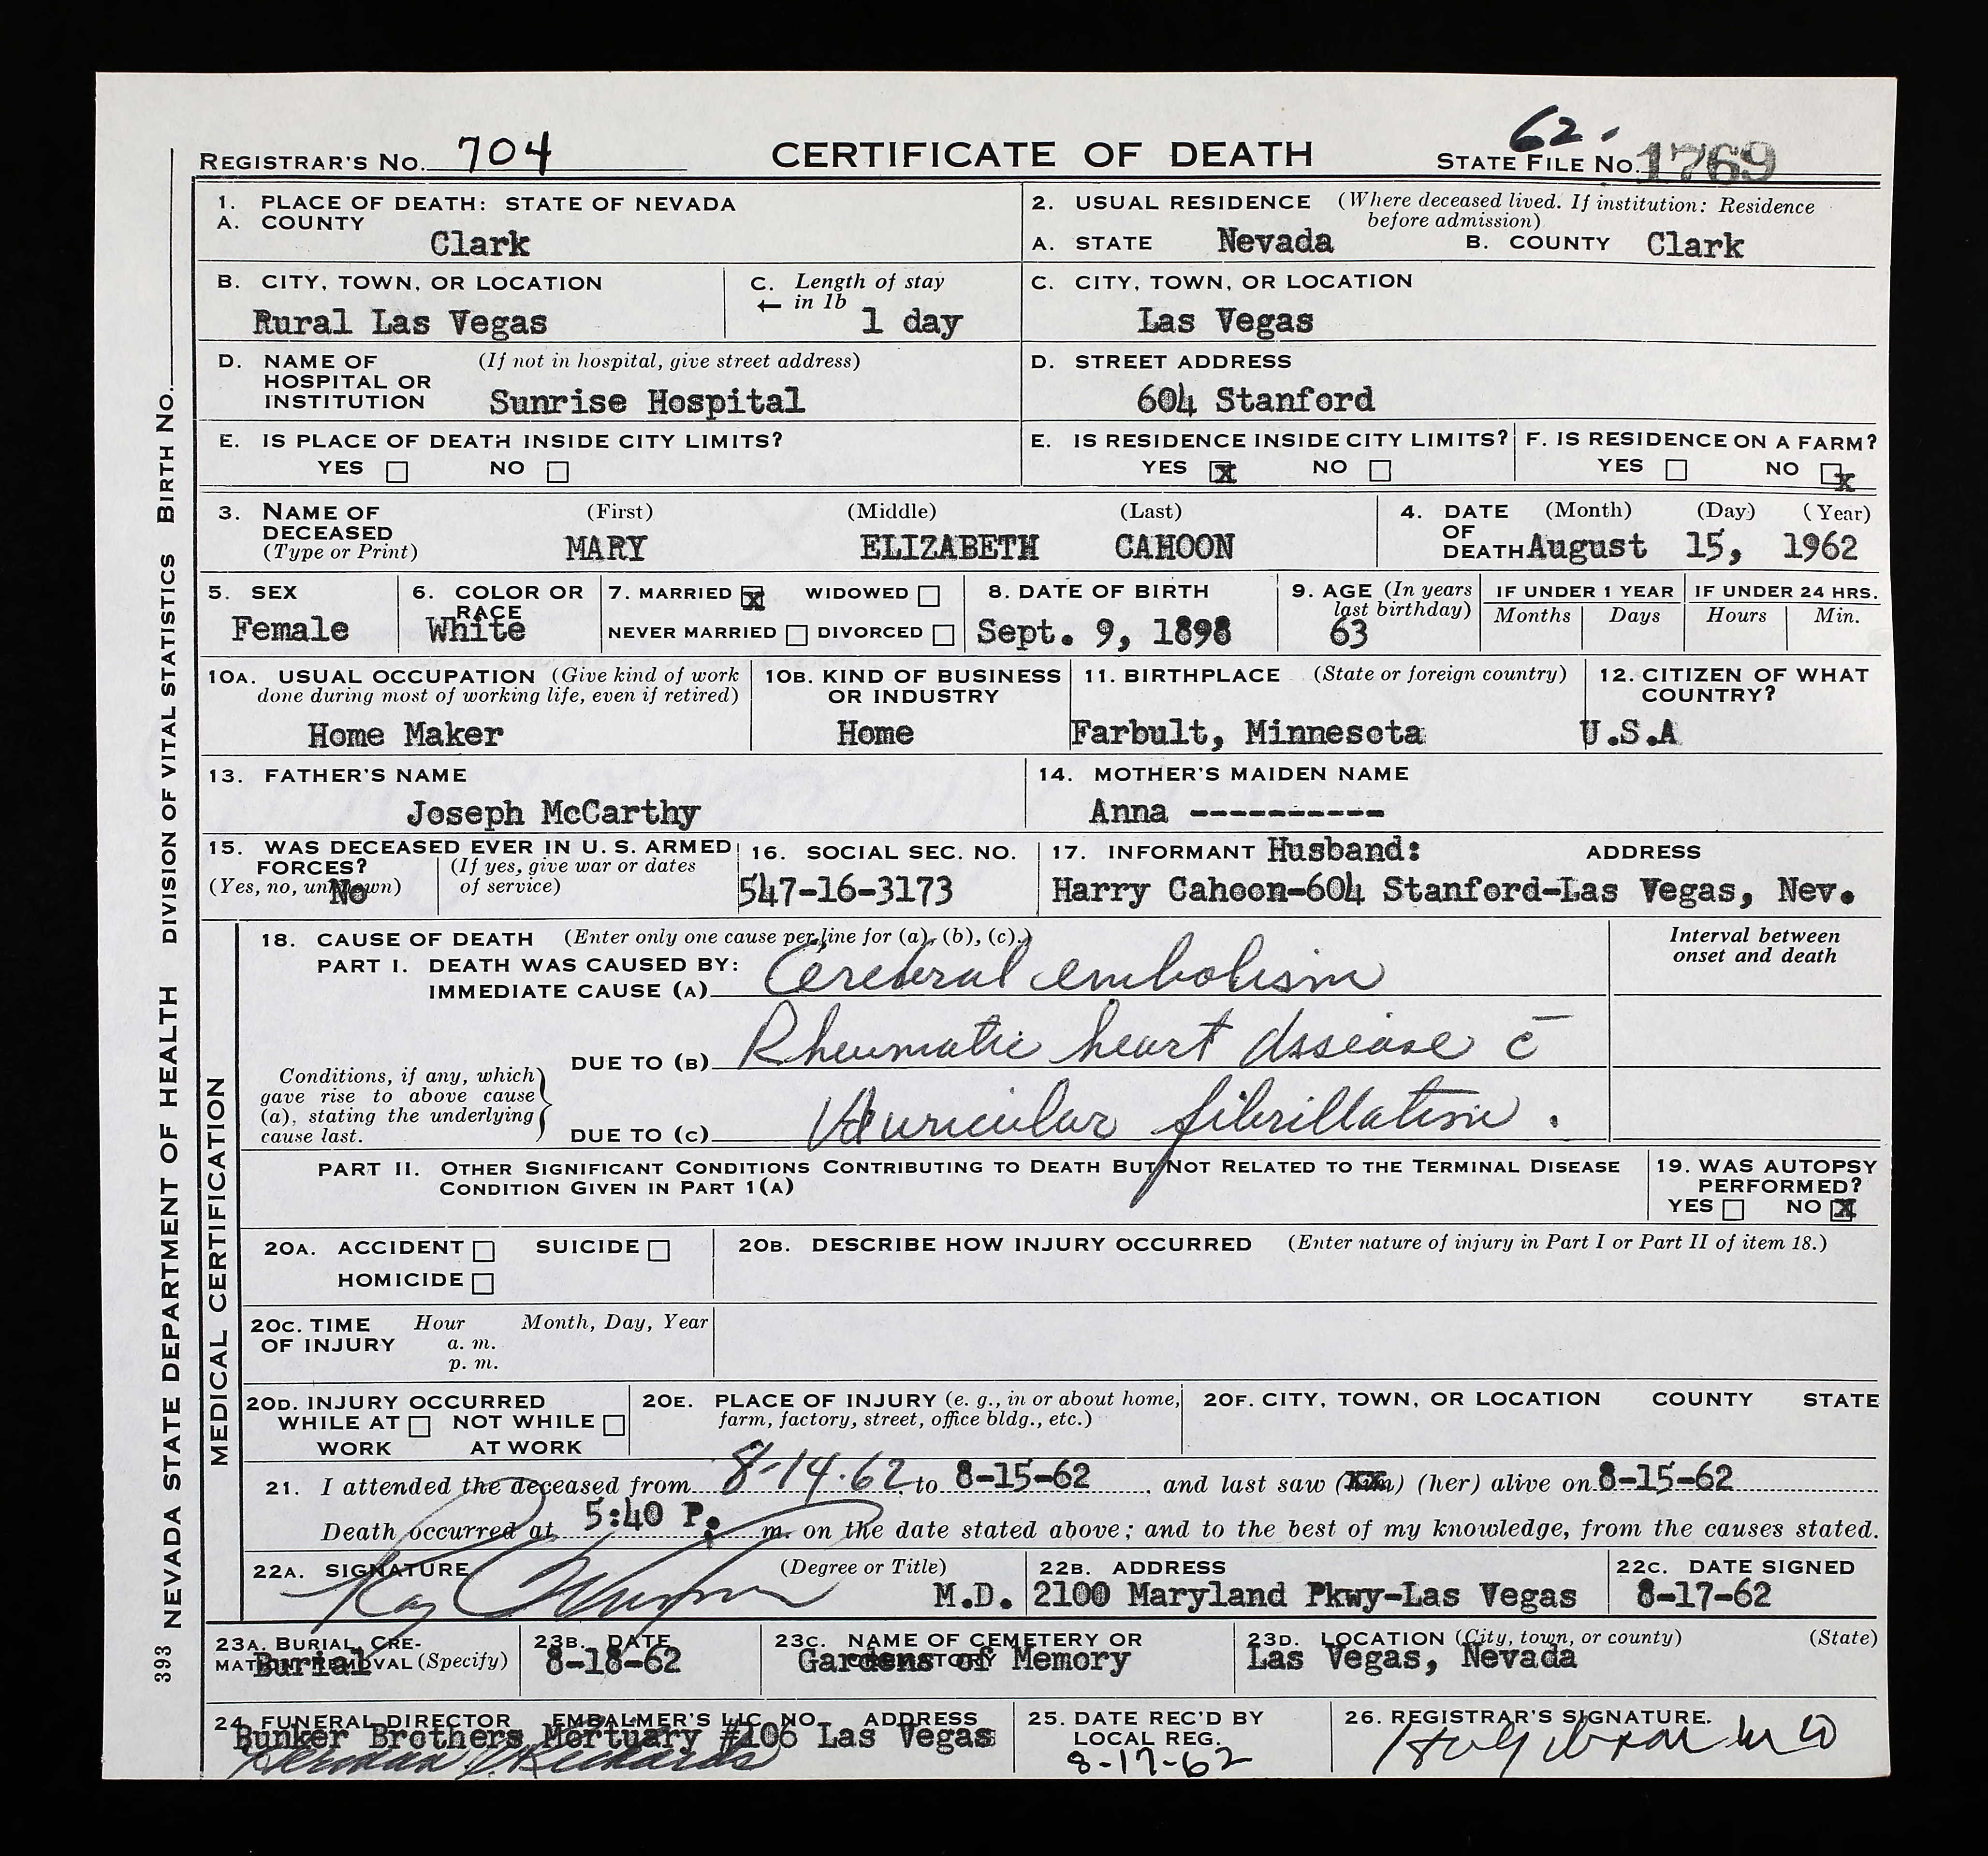 62.
REGISTRAR'S NO. 704 CERTIFICATE OF DEATH STATE FILE NO. 1769
1. PLACE OF DEATH: STATE OF NEVADA
A. COUNTY
Clark
2. USUAL RESIDENCE (Where deceased lived. If institution: Residence
before admission)
A. STATE Nevada B. COUNTY Clark
B. CITY, TOWN, OR LOCATION
Rural Las Vegas
C. Length of stay
← in 1b 1 day
C. CITY, TOWN, OR LOCATION
Las Vegas
D. NAME OF (If not in hospital, give street address)
HOSPITAL OR
INSTITUTION Sunrise Hospital
D. STREET ADDRESS
604 Stanford
E. IS PLACE OF DEATH INSIDE CITY LIMITS?
YES ☐ NO ☐
E. IS RESIDENCE INSIDE CITY LIMITS?
YES ☒ NO ☐
F. IS RESIDENCE ON A FARM?
YES ☐ NO ☒
3. NAME OF (First) (Middle) (Last)
DECEASED
(Type or Print) MARY ELIZABETH CAHOON
4. DATE (Month) (Day) (Year)
OF
DEATH August 15, 1962
5. SEX
Female
6. COLOR OR
RACE
White
7. MARRIED ☒ WIDOWED ☐
NEVER MARRIED ☐ DIVORCED ☐
8. DATE OF BIRTH
Sept. 9, 1898
9. AGE (In years
last birthday)
63
IF UNDER 1 YEAR
Months Days
IF UNDER 24 HRS.
Hours Min.
10A. USUAL OCCUPATION (Give kind of work
done during most of working life, even if retired)
Home Maker
10B. KIND OF BUSINESS
OR INDUSTRY
Home
11. BIRTHPLACE (State or foreign country)
Farbult, Minnesota
12. CITIZEN OF WHAT
COUNTRY?
U.S.A
13. FATHER'S NAME
Joseph McCarthy
14. MOTHER'S MAIDEN NAME
Anna ----------
15. WAS DECEASED EVER IN U. S. ARMED
FORCES? (If yes, give war or dates
(Yes, no, unknown) of service)
No
16. SOCIAL SEC. NO.
547-16-3173
17. INFORMANT Husband: ADDRESS
Harry Cahoon-604 Stanford-Las Vegas, Nev.
18. CAUSE OF DEATH (Enter only one cause per line for (a), (b), (c).)
Interval between
onset and death
PART I. DEATH WAS CAUSED BY:
IMMEDIATE CAUSE (A) Cerebral embolism
DUE TO (B) Rheumatic heart disease c̄
Conditions, if any, which
gave rise to above cause
(a), stating the underlying
cause last.
DUE TO (C) Auricular fibrillation.
PART II. OTHER SIGNIFICANT CONDITIONS CONTRIBUTING TO DEATH BUT NOT RELATED TO THE TERMINAL DISEASE
CONDITION GIVEN IN PART 1(A)
19. WAS AUTOPSY
PERFORMED?
YES ☐ NO ☒
20A. ACCIDENT ☐ SUICIDE ☐
HOMICIDE ☐
20B. DESCRIBE HOW INJURY OCCURRED (Enter nature of injury in Part I or Part II of item 18.)
20C. TIME Hour Month, Day, Year
OF INJURY a. m.
p. m.
20D. INJURY OCCURRED
WHILE AT ☐ NOT WHILE ☐
WORK AT WORK
20E. PLACE OF INJURY (e. g., in or about home,
farm, factory, street, office bldg., etc.)
20F. CITY, TOWN, OR LOCATION COUNTY STATE
21. I attended the deceased from 8-14-62, to 8-15-62, and last saw (him) (her) alive on 8-15-62
Death occurred at 5:40 P. m. on the date stated above; and to the best of my knowledge, from the causes stated.
22A. SIGNATURE (Degree or Title)
M.D.
22B. ADDRESS
2100 Maryland Pkwy-Las Vegas
22C. DATE SIGNED
8-17-62
23A. BURIAL, CRE-
MATION, REMOVAL (Specify)
Burial
23B. DATE
8-18-62
23C. NAME OF CEMETERY OR
CREMATORY
Gardens of Memory
23D. LOCATION (City, town, or county) (State)
Las Vegas, Nevada
24. FUNERAL DIRECTOR EMBALMER'S LIC. NO. ADDRESS
Bunker Brothers Mortuary #106 Las Vegas
25. DATE REC'D BY
LOCAL REG.
8-17-62
26. REGISTRAR'S SIGNATURE.
MEDICAL CERTIFICATION
393 NEVADA STATE DEPARTMENT OF HEALTH DIVISION OF VITAL STATISTICS BIRTH NO.